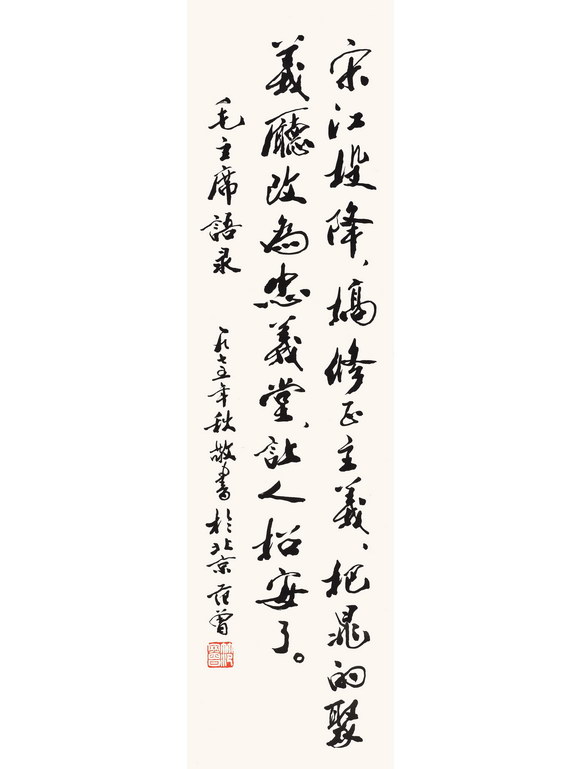 宋江投降、搞修正主義、把晁的聚
義廳改為忠義堂、让人招安了。
毛主席語录 一九七五年秋敬書於北京 范曾